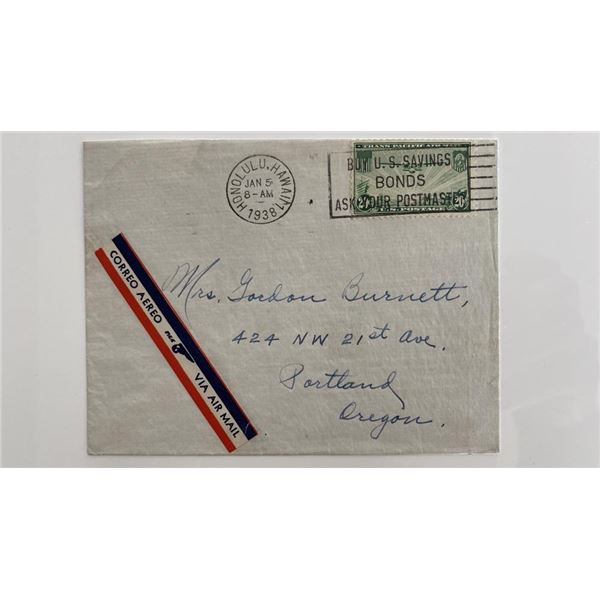 HONOLULU, HAWAII
JAN 5
8-AM
1938
TRANS-PACIFIC AIR MAIL
BUY U.S. SAVINGS
BONDS
ASK YOUR POSTMASTER
20
U.S. POSTAGE
CORREO AEREO
PAA
VIA AIR MAIL
Mrs. Gordon Burnett,
424 NW 21st Ave.
Portland
Oregon.